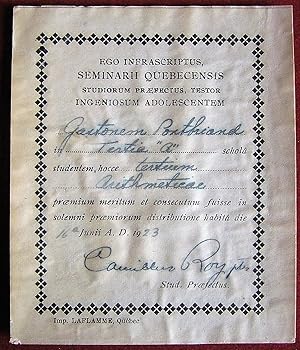 EGO INFRASCRIPTUS,
SEMINARII QUEBECENSIS
STUDIORUM PRÆFECTUS, TESTOR
INGENIOSUM ADOLESCENTEM
Gastonem Pouthriand
in Tertia "A" scholâ
studentem, hocce tertium
Arithmeticae
præmium meritum et consecutum fuisse in
solemni præmiorum distributione habitâ die
16a Junii A. D. 1923
Camillus Roy, pter
Stud. Præfectus.
Imp. LAFLAMME, Québec